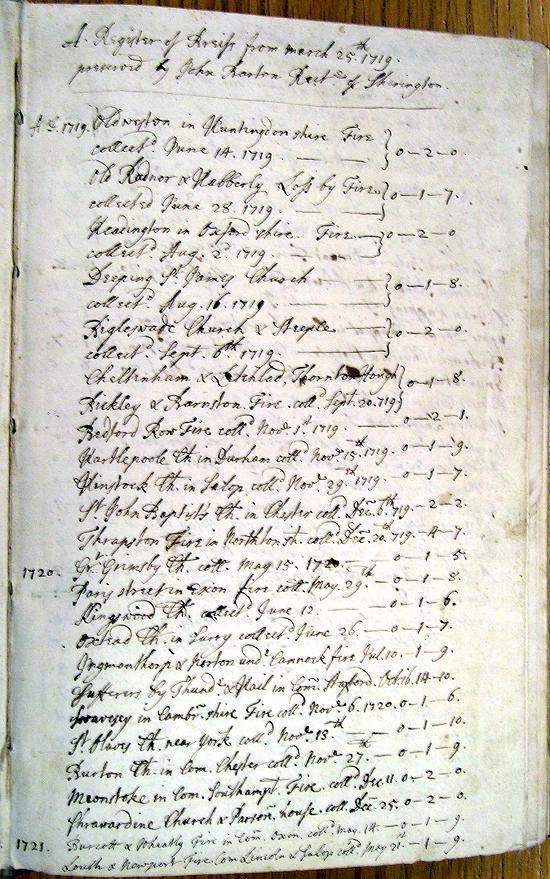 A Register of Breifs from march 25th 1719.
preserved by John Barton Rectr of Sherington.
A.D. 1719. Oldweston in Huntingdon shire Fire
collectd June 14. 1719. 0-2-0.
Old Radnor & Loss by Fire 0-1-7.
collected June 28. 1719.
Headington in Oxford shire. Fire 0-2-0
collectd Aug. 2d. 1719.
Deeping St James Church 0-1-8.
collectd Aug. 16. 1719
Bigleswade Church & Steeple 0-2-0.
collectd Sept. 6th 1719.
Cheltenham & Thornton Hough 0-1-8.
& Barnston Fire coll. Sept. 20. 719
Bedford Row Fire colld Novr 1st 1719. 0-2-1.
Hartlepoole Ch. in Durham colld Novr 15th 1719. 0-1-9.
Ch. in Salop colld Novr. 29th 1719. 0-1-7.
St John Baptists Ch. in Chester colld Decr 6th 719. -2-2.
Thrapston Fire in Northton sh. colld Decr 20. 719. -4-7.
1720. Gt Grimsby Ch. collt May 15. 1720. 0-1-5.
Pary street in Exon Fire colld May. 29th 0-1-8.
Kingswood Ch. collectd June 12. 0-1-6.
Oxtead Ch. in Surry collectd June 26. 0-1-7.
Ingmanthorp & Norton undr Cannock fire Jul. 10. -1-9.
Sufferers by Thundr & Hail in Com. Stafford. Octr 16. 14-10.
in Cambr. shire Fire colld Novr 6. 1720. 0-1-6.
St Olaves Ch. near York colld Novr 13th 0-1-10.
Burton Ch. in Com. Chester colld Novr 27th 0-1-9.
Meonstoke in Com. Southampt. Fire. colld Dec. 11. 0-2-0.
Shrawardine Church & Parson. house. coll. Dec 25. 0-2-0.
1721. Burcott & Wheatly Fire in Com. Oxon. colld May. 14. 0-1-9.
Louth & Newport Fire Com Lincoln & Salop colld May 21st -1-9.